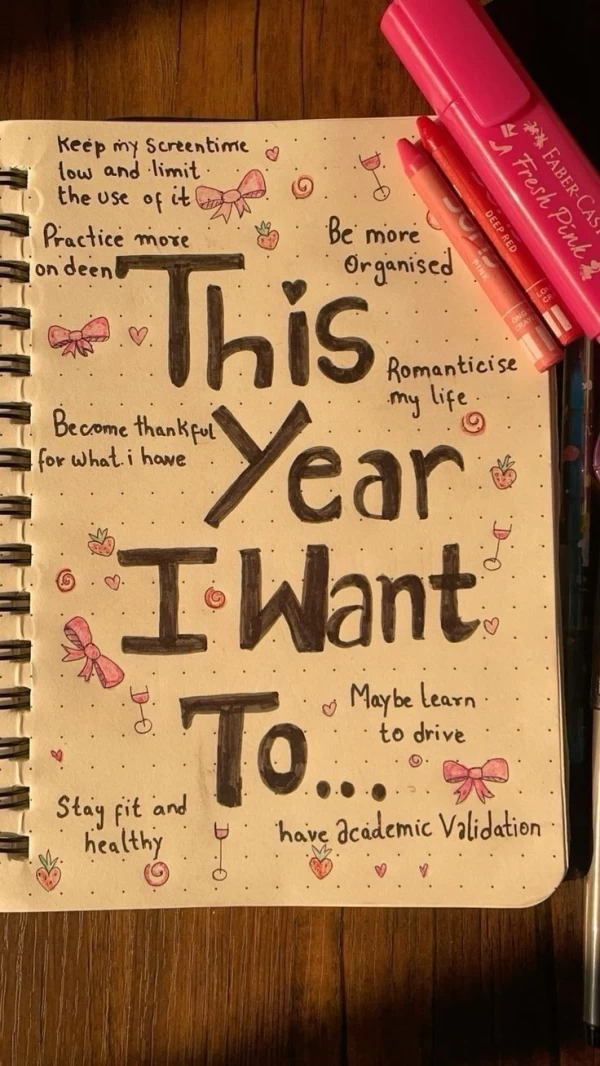 Keep my Screentime
low and limit
the use of it
Practice more
on deen
Be more
Organised
This
Romanticise
my life
Become thankful
for what i have
Year
I Want
To...
Maybe learn
to drive
Stay fit and
healthy
have academic Validation
FABER-CAST
Fresh Pink
DEEP RED
PINK